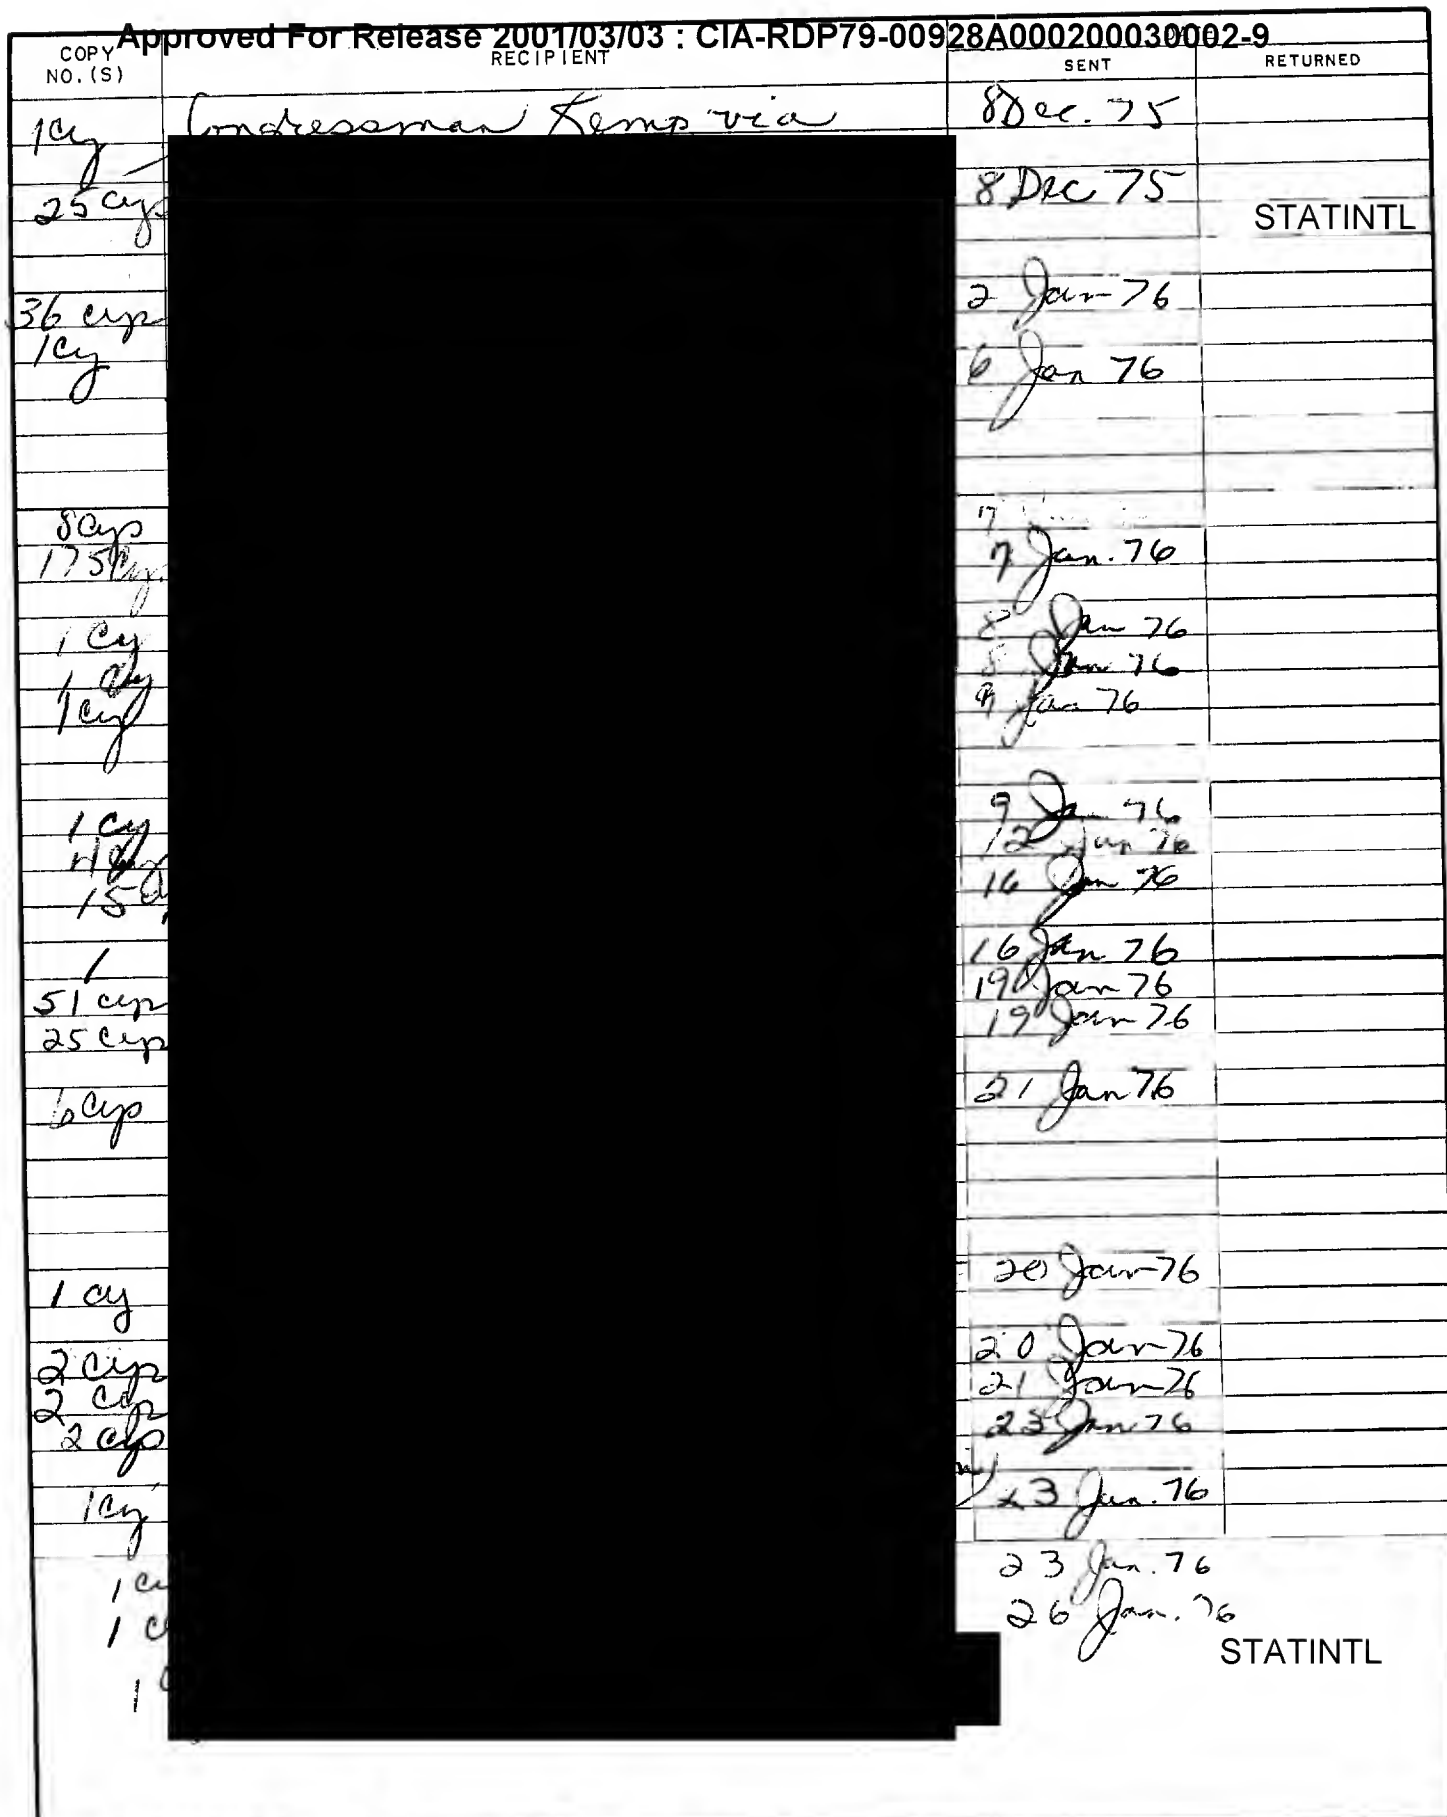 Approved For Release 2001/03/03 : CIA-RDP79-00928A000200030002-9
COPY NO.(S) RECIPIENT SENT RETURNED
1cy Congressman Kemp via 8 Dec. 75
25 cys 8 Dec 75
STATINTL
36 cys 2 Jan 76
1cy 6 Jan 76
8 cys
175 cys 7 Jan. 76
1 cy 8 Jan 76
1 cy 8 Jan 76
1 cy 9 Jan 76
1 cy 9 Jan 76
12 Jan 76
15 16 Jan 76
1 16 Jan 76
51 cys 19 Jan 76
25 cys 19 Jan 76
6 cys 21 Jan 76
1 cy 20 Jan 76
2 cys 20 Jan 76
2 cys 21 Jan 76
2 cys 23 Jan 76
1cy 23 Jan. 76
1 c 23 Jan. 76
1 c 26 Jan. 76
STATINTL
1